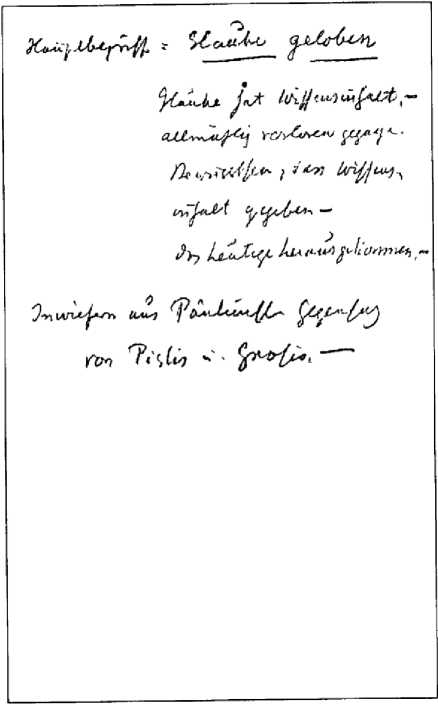 Hauptbegriff = Glaube geloben
Glaube hat Wissensinhalt, –
allmählig verloren gegangen.
dass Wissens-
inhalt gegeben –
das heutige herausgekommen. –
Inwiefern aus Gegensatz
von Pistis u. Gnosis. —